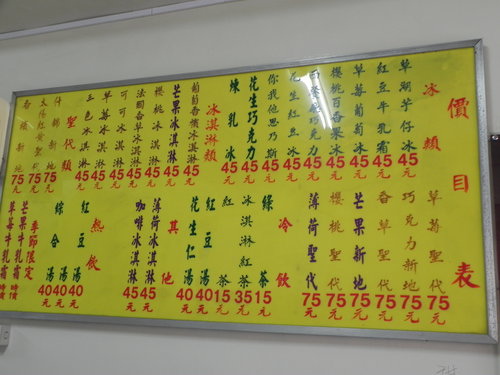 價目表
冰類
草湖芋仔冰 45元
紅豆牛乳霜 45元
草莓葡萄冰 45元
櫻桃百香果冰 45元
花生紅豆冰 45元
你我他思乃斯 45元
花生巧克力 45元
煉乳冰 45元
冰淇淋類
葡萄香頌冰淇淋 45元
芒果冰淇淋 45元
法國香草冰淇淋 45元
可可冰淇淋 45元
三色冰淇淋 45元
聖代類
什錦新地 75元
太陽紅豆聖代 75元
香橫新地 75元
草莓聖代 75元
巧克力新地 75元
香草聖代 75元
芒果新地 75元
櫻桃聖代 75元
薄荷聖代 75元
冷飲
綠茶 15元
冰淇淋紅茶 35元
紅茶 15元
紅豆湯 40元
花生仁湯 40元
其他
薄荷冰淇淋 45元
咖啡冰淇淋 45元
熱飲
紅豆湯 40元
綜合湯 40元
季節限定
芒果牛乳霜 時價
草莓牛乳霜 時價